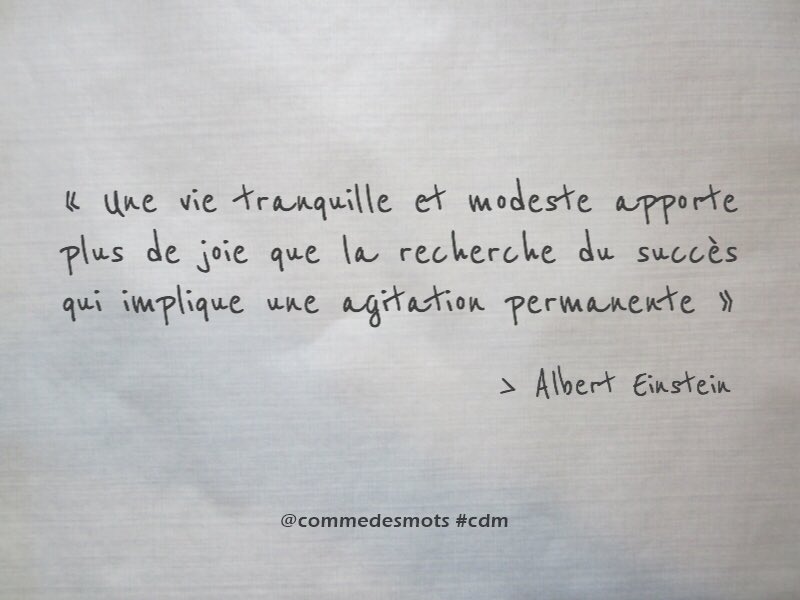 « Une vie tranquille et modeste apporte
plus de joie que la recherche du succès
qui implique une agitation permanente »
> Albert Einstein
@commedesmots #cdm